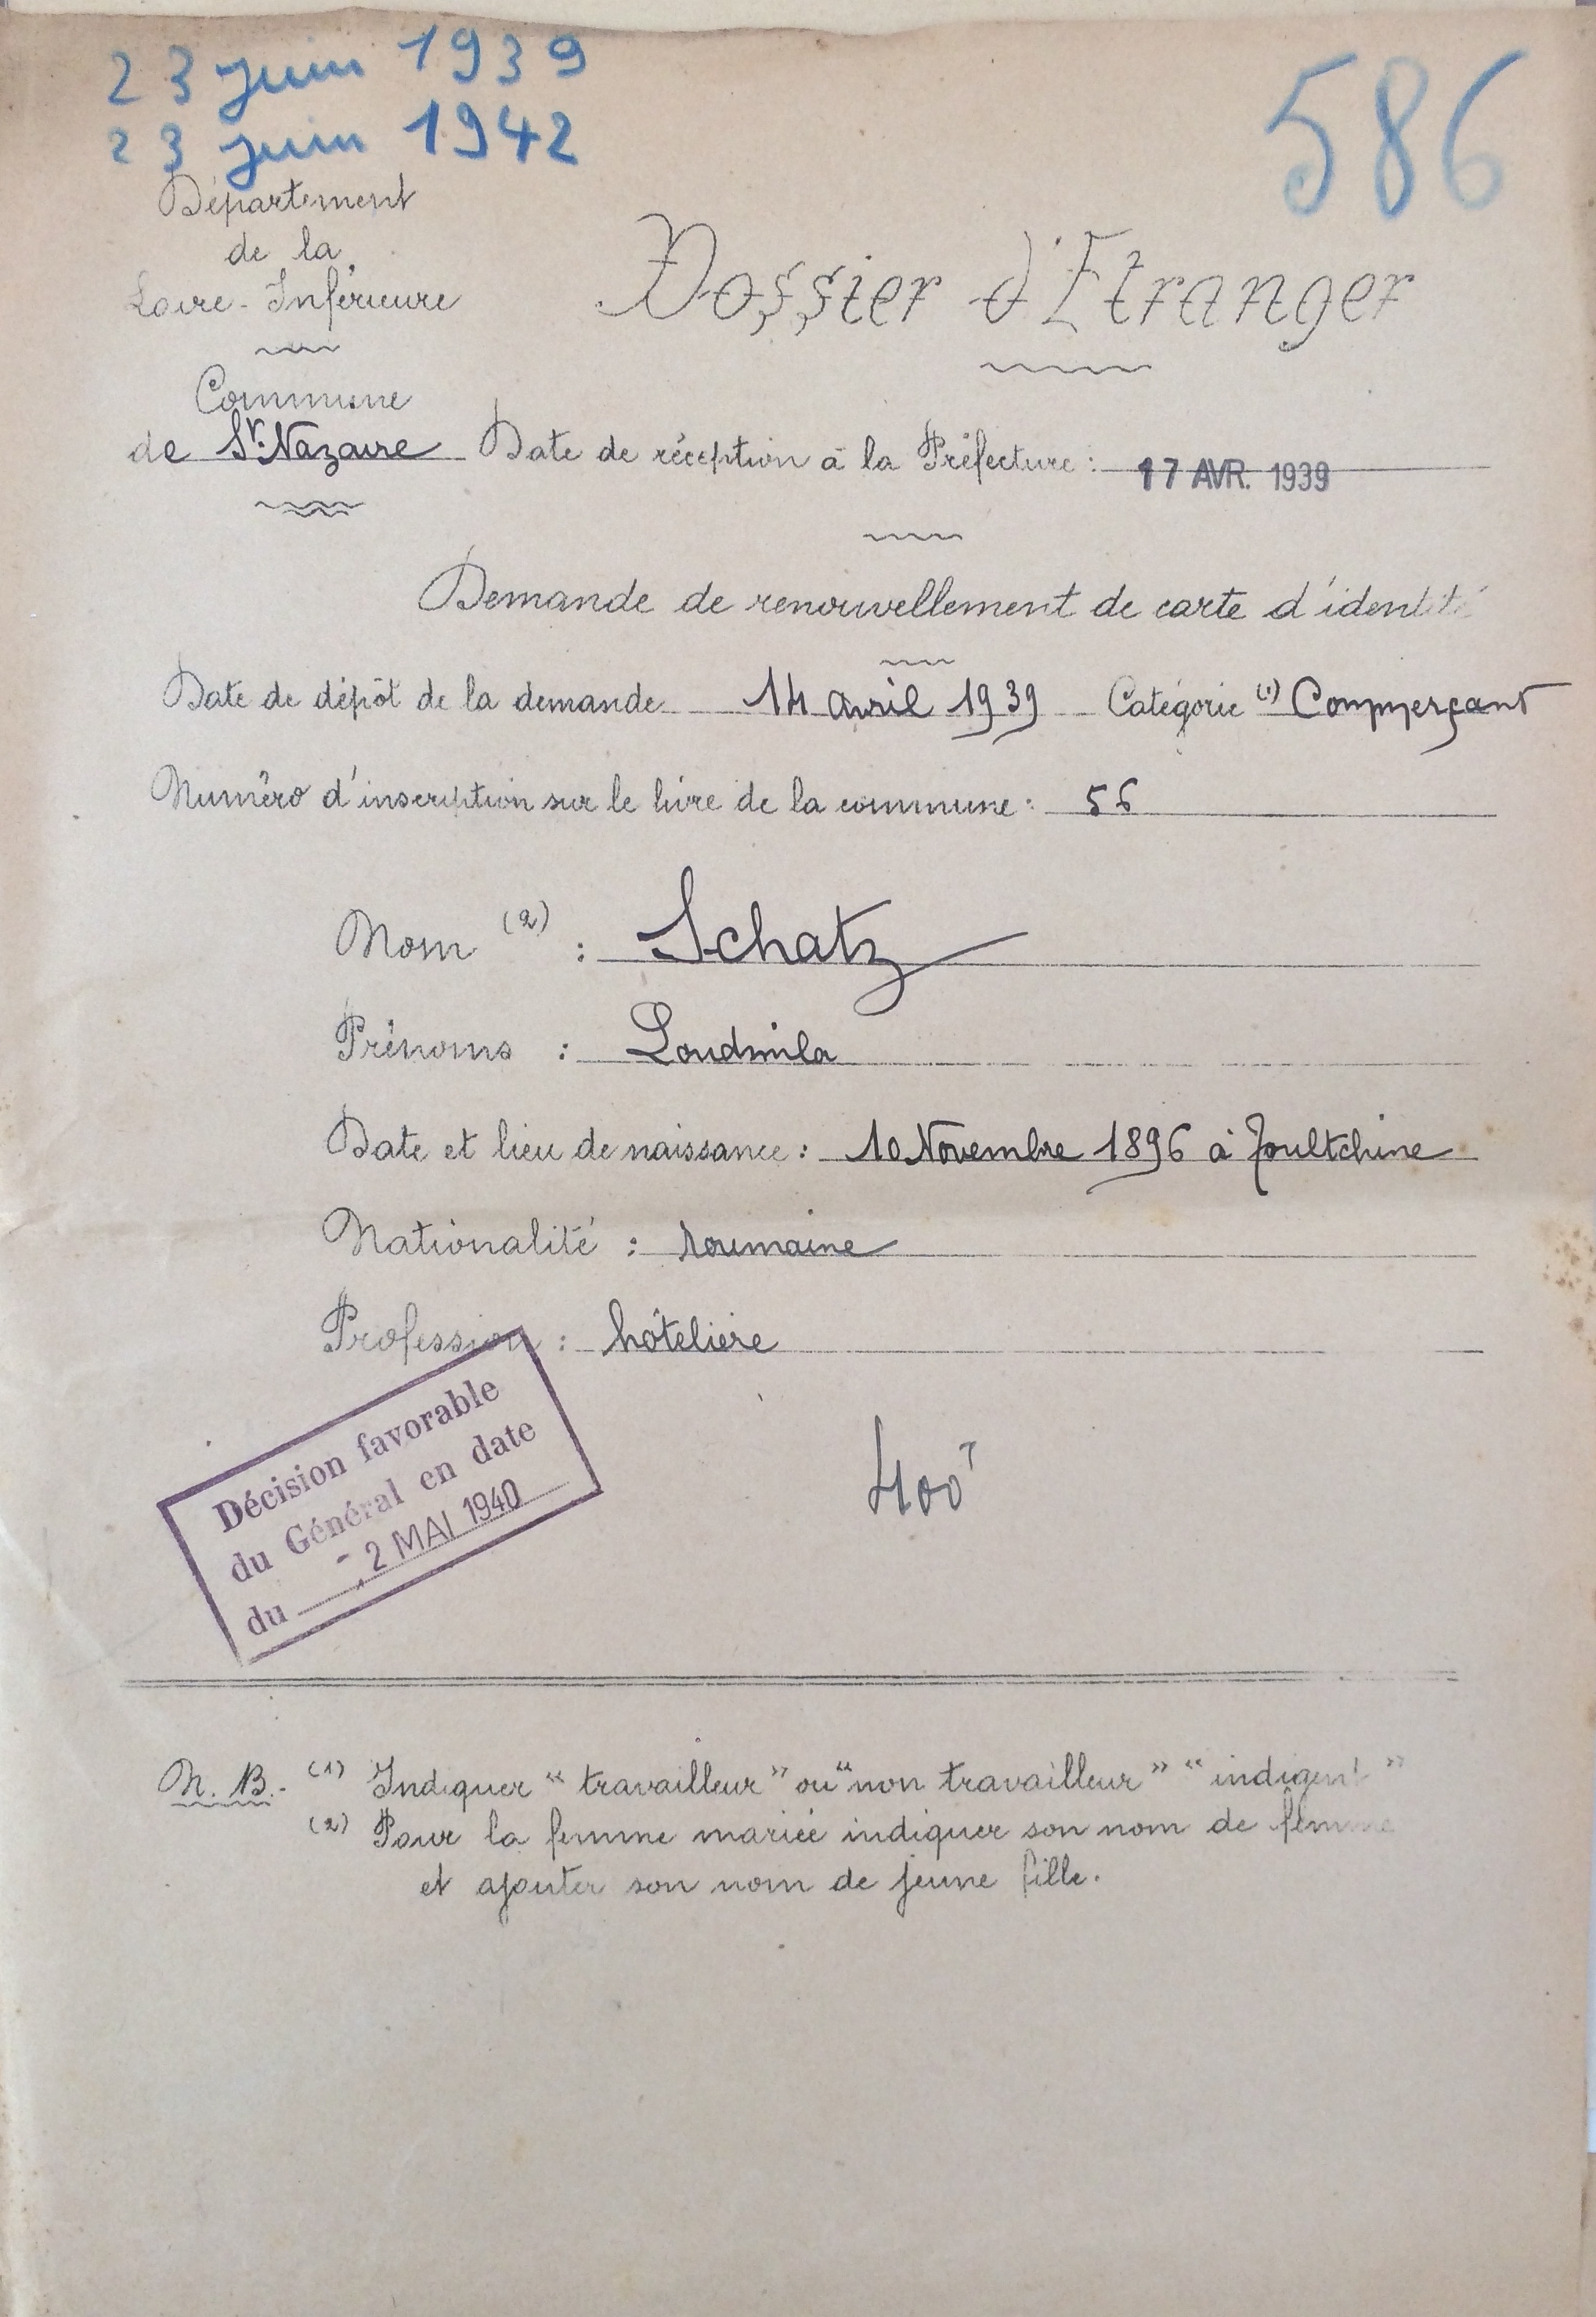 23 juin 1939
23 juin 1942
586
Département
de la
Loire-Inférieure
Dossier d'Etranger
Commune
de St. Nazaire
Date de réception à la Préfecture : 17 AVR. 1939
Demande de renouvellement de carte d'identité
Date de dépôt de la demande 14 avril 1939 Catégorie (1) Commerçant
Numéro d'inscription sur le livre de la commune : 56
Nom (2) : Schatz
Prénoms : Loudmila
Date et lieu de naissance : 10 Novembre 1896 à Toultchine
Nationalité : roumaine
Profession : hôtelière
Décision favorable
du Général en date
du - 2 MAI 1940
400
N. B. - (1) Indiquer "travailleur" ou "non travailleur" "indigent"
(2) Pour la femme mariée indiquer son nom de femme
et ajouter son nom de jeune fille.